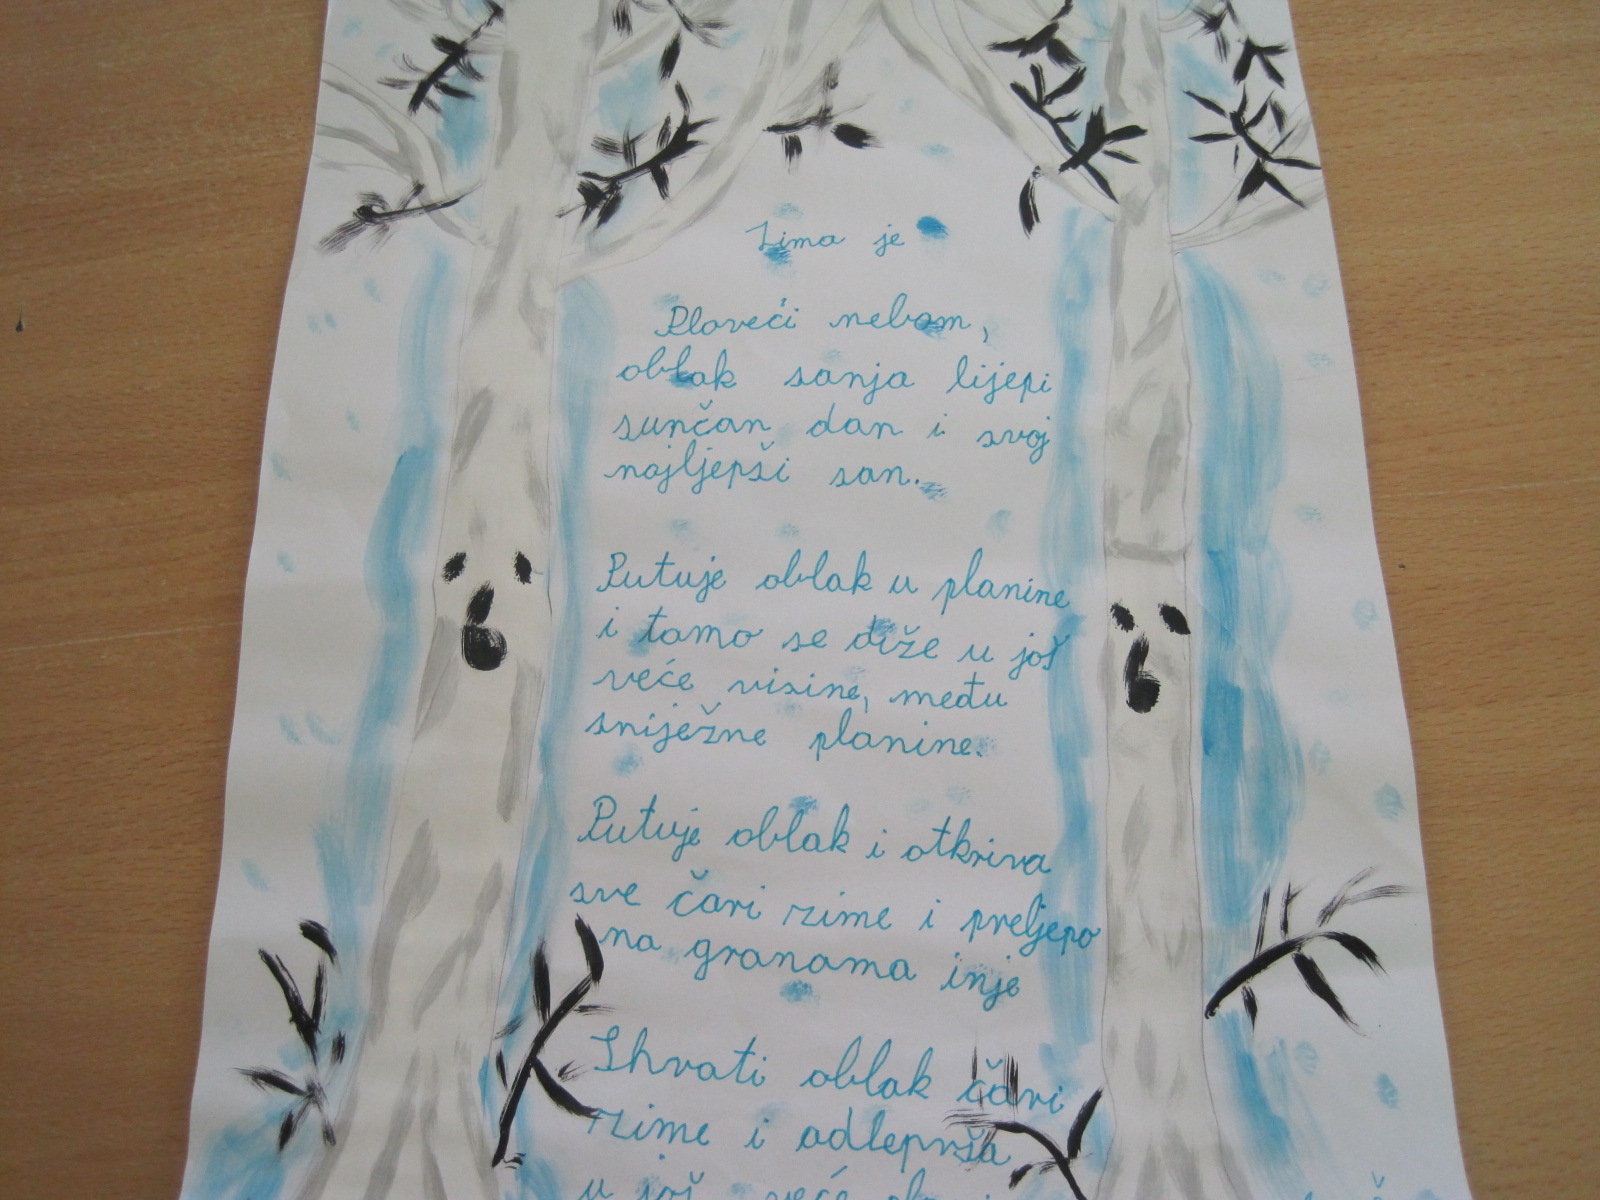 Zima je
Ploveći nebom,
oblak sanja lijepi
sunčan dan i svoj
najljepši san.
Putuje oblak u planine
i tamo se diže u još
veće visine, među
sniježne planine.
Putuje oblak i otkriva
sve čari zime i preljepo
na granama inje
Shvati oblak čari
zime i odleprša
u još veće